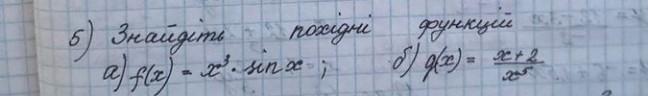 5) Знайдіть похідні функцій
а) f(x) = x³ · sin x ; б) g(x) = (x+2)/x⁵